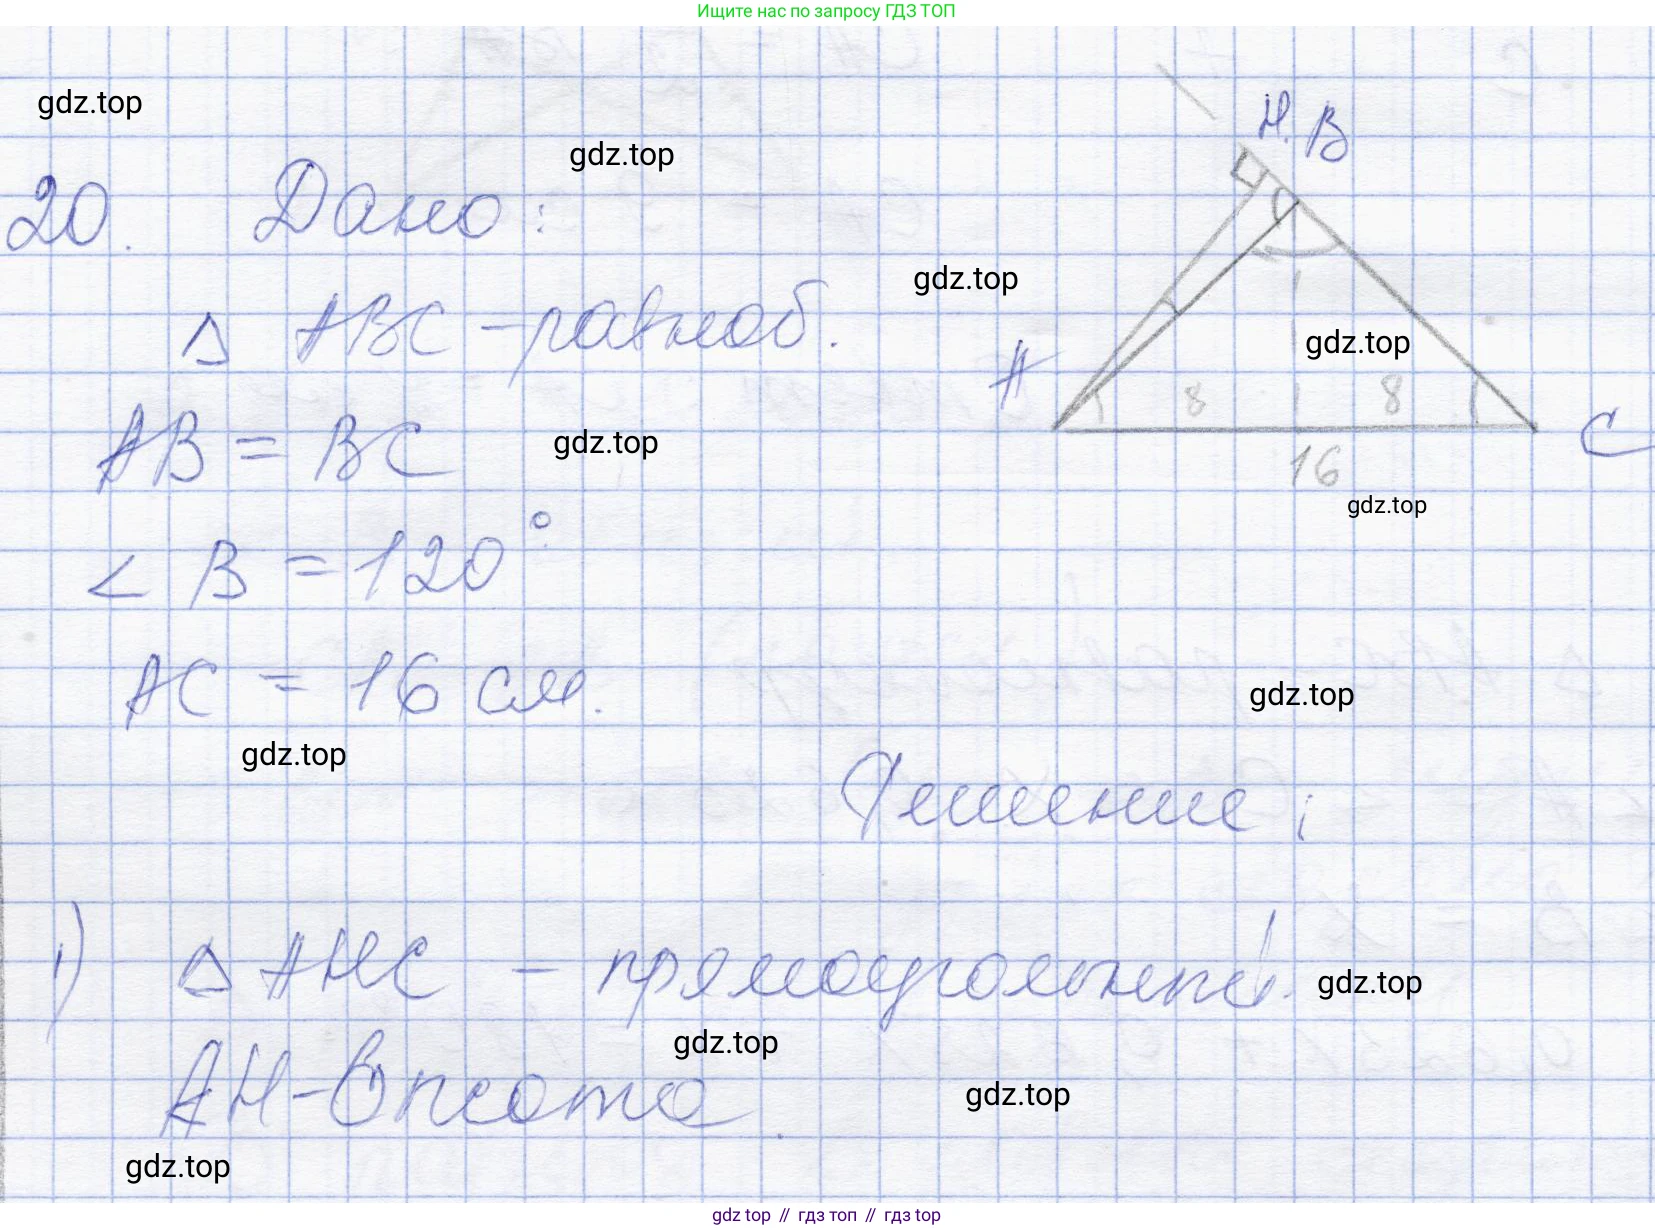 Ищите нас по запросу ГДЗ ТОП
gdz.top
H. B
gdz.top
20. Дано:
gdz.top
Δ ABC - равноб.
gdz.top
A
8 8
AB = BC
gdz.top
C
16
gdz.top
∠ B = 120°.
AC = 16 см.
gdz.top
gdz.top
Решение:
1) Δ AHC - прямоугольный.
gdz.top
gdz.top
AH - высота.
gdz.top
gdz.top
gdz top // гдз топ // гдз top